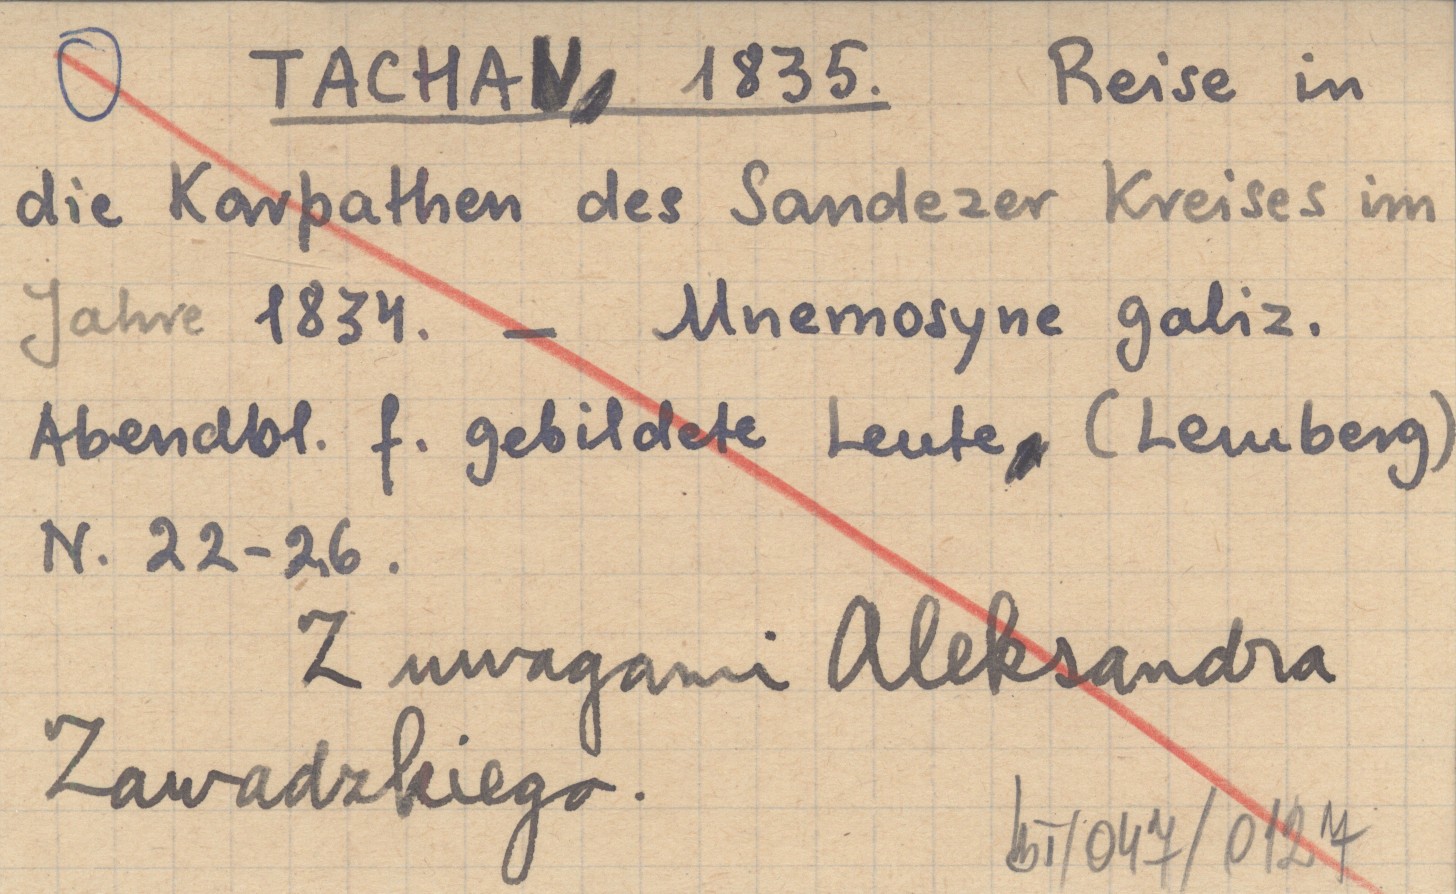 TACHAU, 1835. Reise in
die Karpathen des Sandezer Kreises im
Jahre 1834. — Mnemosyne galiz.
Abendbl. f. gebildete Leute, (Lemberg)
N. 22-26.
Z uwagami Aleksandra
Zawadzkiego.
/047/0127